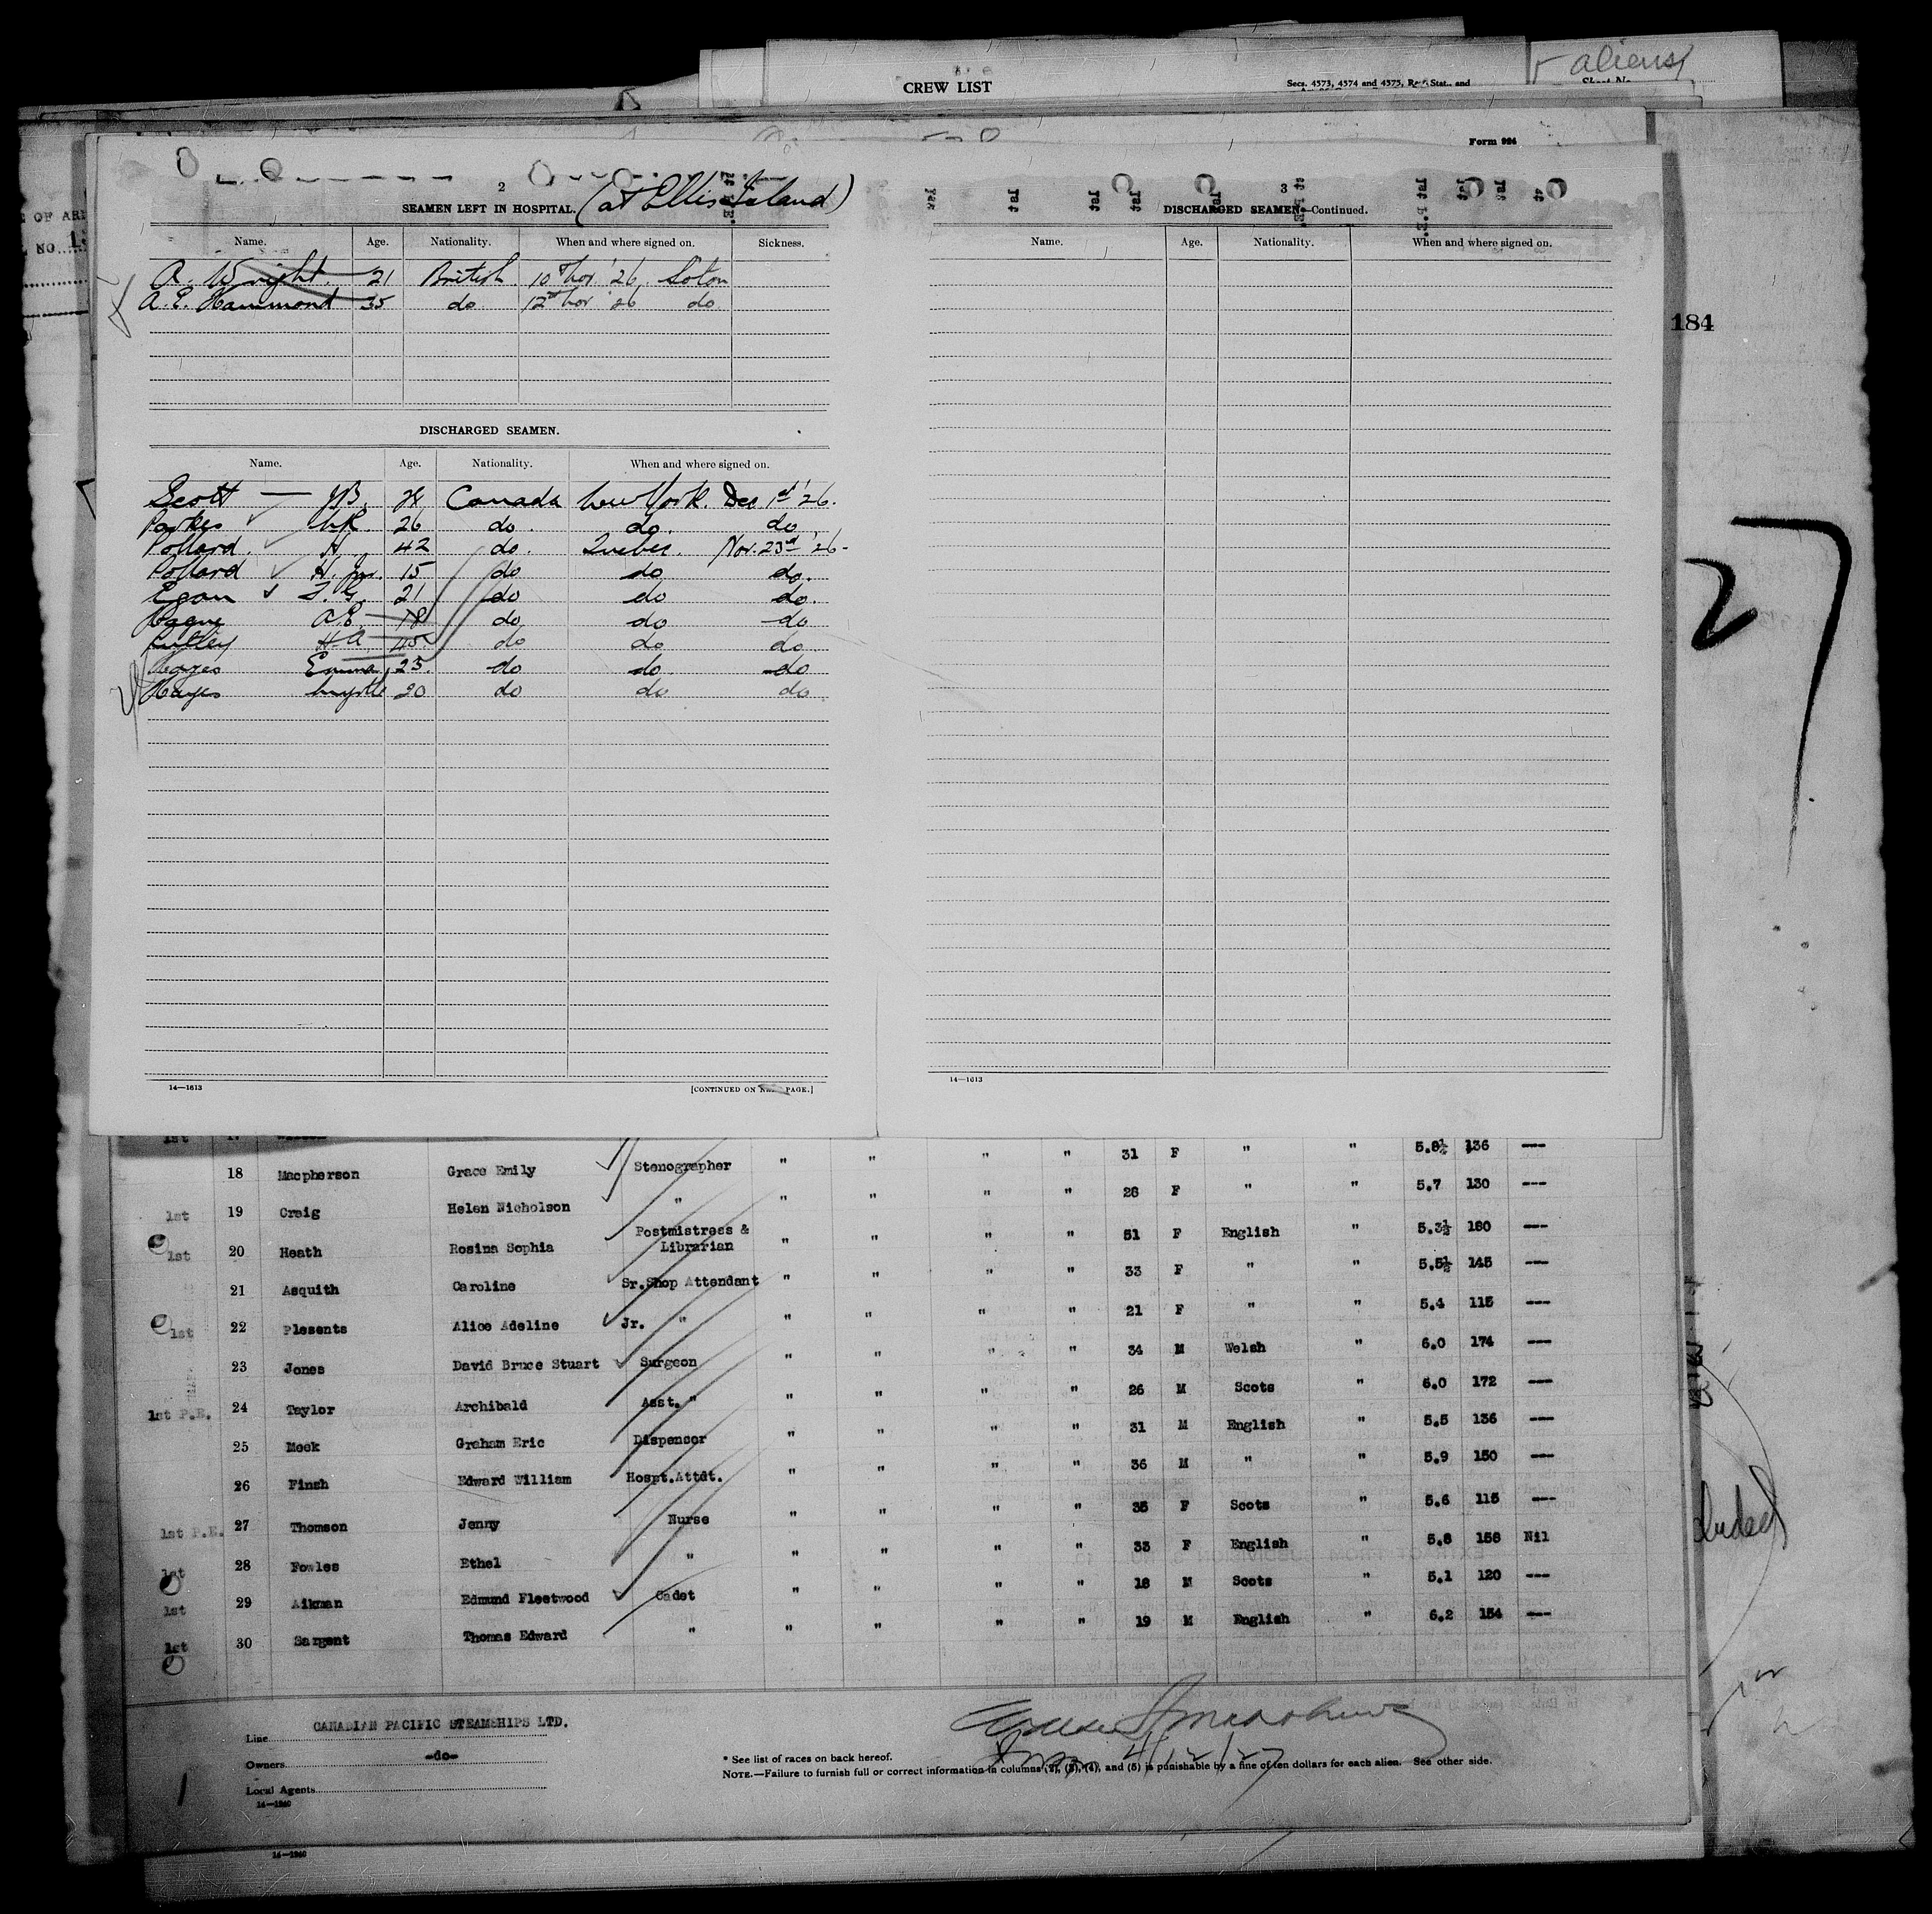 aliens
CREW LIST
Secs. 4573, 4574 and 4575, Stat., and
Form 924
2
SEAMEN LEFT IN HOSPITAL. (at Ellis Island)
Name. Age. Nationality. When and where signed on. Sickness.
A. Wright. 21 British 10th Nov. '26. Soton
A. E. Hammond 35 do 12th Nov '26 do
DISCHARGED SEAMEN.
Name. Age. Nationality. When and where signed on.
Scott Canada New York. Dec 1st '26.
Parkes 26 do. do. do
Pollard. H. 42 do. Quebec. Nov. 23rd '26-
Pollard H. jnr. 15 do do do.
Egan 21 do do do.
A.E. 18 do do do
H.A. 45 do do do
Emma 23. do do. do
Hayes Myrtle 20 do do do
14—1613
[CONTINUED ON PAGE.]
3
DISCHARGED SEAMEN—Continued.
Name. Age. Nationality. When and where signed on.
14—1613
184
27
18 Macpherson Grace Emily Stenographer " " " " 31 F " " 5.8½ 136 ---
1st 19 Craig Helen Nicholson " " " " " 28 F " " 5.7 130 ---
1st 20 Heath Rosina Sophia Postmistress & Librarian " " " " 51 F English " 5.3½ 180 ---
21 Asquith Caroline Sr.Shop Attendant " " " " 33 F " " 5.5½ 145 ---
1st 22 Plesents Alice Adeline Jr. " " " " " 21 F " " 5.4 115 ---
23 Jones David Bruce Stuart Surgeon " " " " 34 M Welsh " 6.0 174 ---
1st P.E. 24 Taylor Archibald Asst. " " " " " 26 M Scots " 6.0 172 ---
25 Meek Graham Eric Dispencer " " " " 31 M English " 5.5 136 ---
26 Finch Edward William Hospt.Attdt. " " " " 36 M " " 5.9 150 ---
1st P.E. 27 Thomson Jenny Nurse " " " " 35 F Scots " 5.6 115 ---
1st 28 Fowles Ethel " " " " " 33 F English " 5.8 158 Nil
1st 29 Aikman Edmund Fleetwood Cadet " " " " 18 M Scots " 5.1 120 ---
1st 30 Sargent Thomas Edward " " " " " 19 M English " 6.2 154 ---
Line CANADIAN PACIFIC STEAMSHIPS LTD.
Owners -do-
Local Agents
14—1240
* See list of races on back hereof.
NOTE.—Failure to furnish full or correct information in columns (2), (3), (4), and (5) is punishable by a fine of ten dollars for each alien. See other side.
14—1240